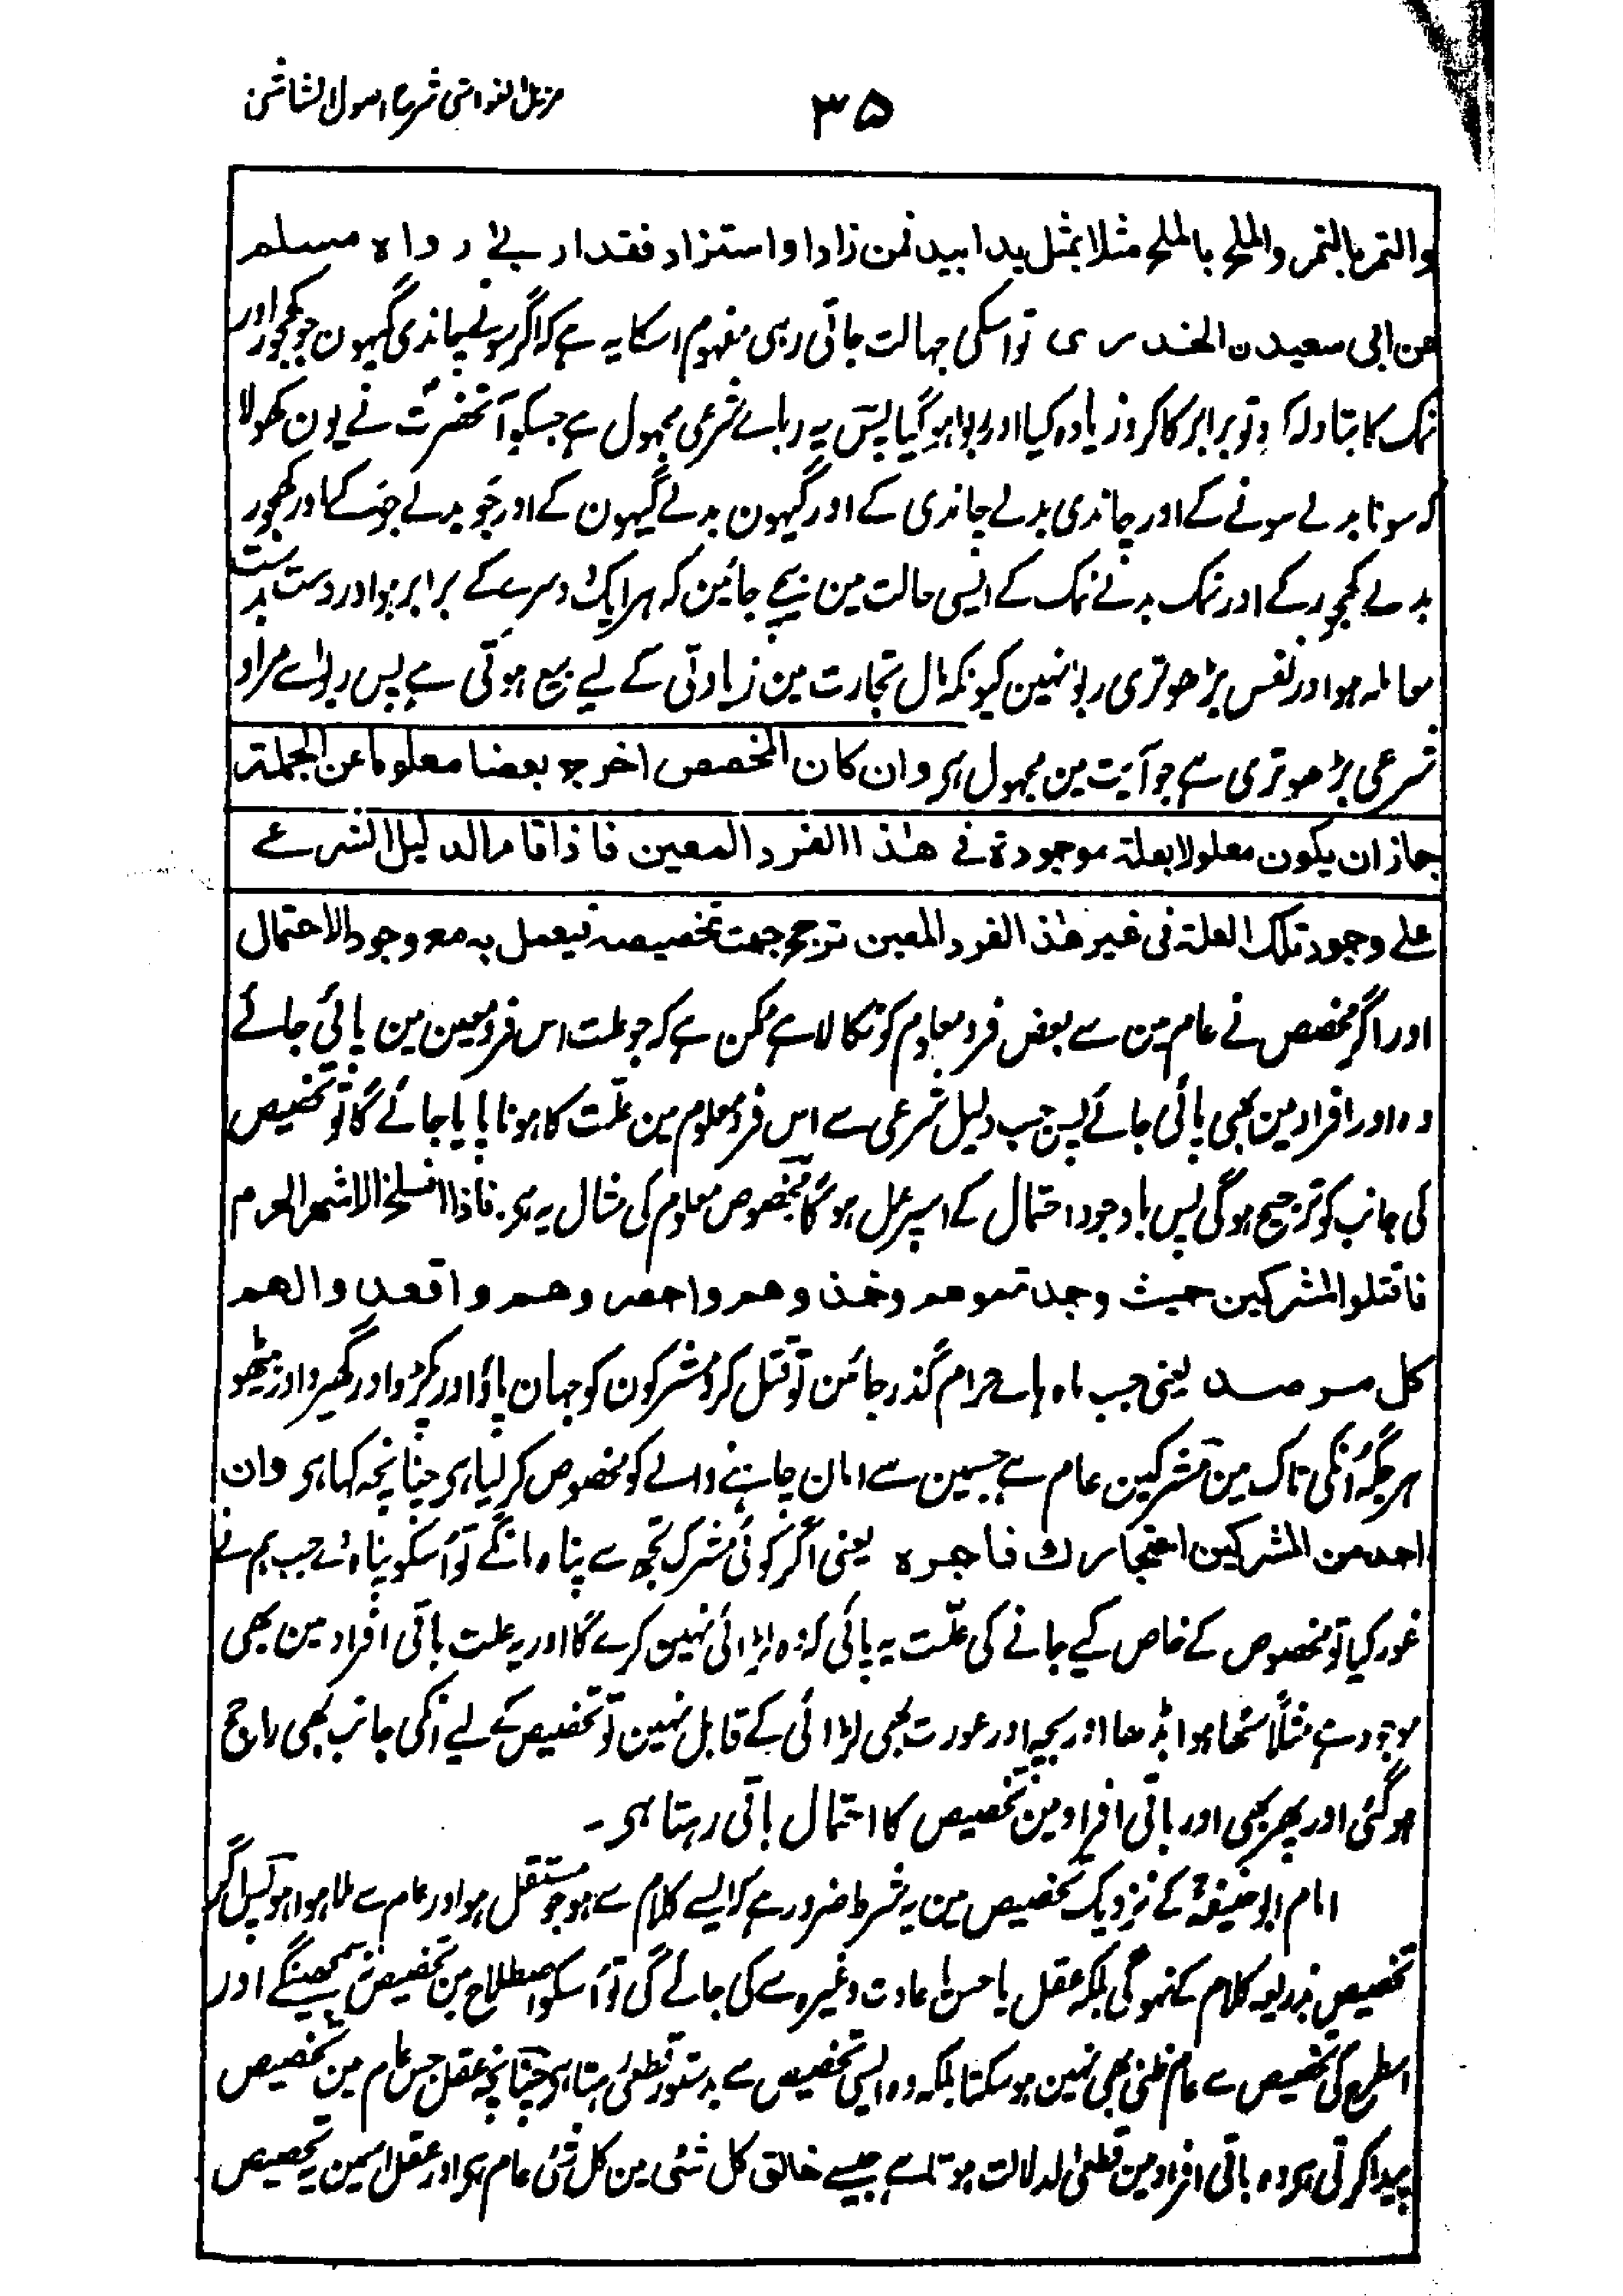 ۳۵
مزیل الغواشی شرح اصول الشاشی
والتمر بالتمر والملح بالملح مثلا بمثل یدا بید فمن زادا واستزاد فقد اربے رواہ مسلم
عن ابی سعیدن الخدری تو اسکی جہالت جاتی رہی مفہوم اسکا یہ ہے کہ اگر سونے چاندی گیہون جو کھجور اور
نمک کا تبادلہ کرو تو برابر کا کرو زیادہ کیا اور ربوا ہوگیا پس یہ رباے شرعی مجہول ہے جسکو آنحضرتؐ نے یون کھولا
کہ سونا بدلے سونے کے اور چاندی بدلے چاندی کے اور گیہون بدلے گیہون کے اور جَو بدلے جَو کے اور کھجور
بدلے کھجور کے اور نمک بدلے نمک کے ایسی حالت مین بیچے جائین کہ ہر ایک دوسرے کے برابر ہو اور دست بدست
معاملہ ہو اور نفس بڑھوتری ربوا نہین کیونکہ مال تجارت مین زیادتی کے لیے بیع ہوتی ہے پس ربوا سے مراد
شرعی بڑھوتری ہے جو آیت مین مجہول ہی وان کان المخصص اخرج بعضا معلوما عن الجملۃ
جاز ان یکون معلولا بعلۃ موجودۃ فی ھٰذا الفرد المعین فاذا قام الدلیل الشرعے
علے وجود تلک العلۃ فی غیر ھٰذا الفرد المعین ترجح جھۃ تخصیصہ فیعمل بہ مع وجود الاحتمال
اور اگر مخصص نے عام مین سے بعض فرد معلوم کو نکالا ہے ممکن ہے کہ جو علت اس فرد معین مین پائی جائے
وہ اور افراد مین بھی پائی جائے پس جب دلیل شرعی سے اس فرد معلوم مین علّت کا ہونا پایا جائے گا تو تخصیص
کی جانب کو ترجیح ہوگی پس باوجود احتمال کے اسپر عمل ہوگا مخصوص معلوم کی مثال یہ ہی۔ فاذا انسلخ الاشھر الحرم
فاقتلوا المشرکین حیث وجدتموھم وخذوھم واحصروھم واقعدوا لھم
کل مرصد یعنی جب ماہ ہاے حرام گذر جائین تو قتل کرو مشرکون کو جہان پاؤ اور پکڑو اور گھیرو اور بیٹھو
ہر جگہ اُنکی تاک مین مشرکین عام ہے جسمین سے امان چاہنے والے کو مخصوص کر لیا ہی چنانچہ کہا ہی وان
احد من المشرکین استجارک فاجرہ یعنی اگر کوئی مشرک تجھ سے پناہ مانگے تو اُسکو پناہ دے جب ہم نے
غور کیا تو مخصوص کے خاص کیے جانے کی علّت یہ پائی کہ وہ لڑائی نہین کرے گا اور یہ علت باقی افراد مین بھی
موجود ہے مثلًا سٹھا ہوا بڈھا اور بچہ اور عورت بھی لڑائی کے قابل نہین تو تخصیص کے لیے انکی جانب بھی راجح
ہوگئی اور پھر بھی اور باقی افراد مین تخصیص کا احتمال باقی رہتا ہی۔
امام ابوحنیفہؒ کے نزدیک تخصیص مین یہ شرط ضرور ہے کہ ایسے کلام سے ہو جو مستقل ہو اور عام سے ملا ہوا ہو پس اگر
تخصیص بذریعہ کلام کے نہوگی بلکہ عقل یا حس یا عادت وغیرہ سے کی جائے گی تو اُسکو اصطلاح مین تخصیص نہ سمجھینگے اور
اسطرح کی تخصیص سے عام ظنی بھی نہین ہو سکتا بلکہ وہ ایسی تخصیص سے بدستور قطعی رہتا ہی چنانچہ عقل جس عام مین تخصیص
پیدا کرتی ہی وہ باقی افراد مین قطعی الدلالت ہوتا ہے جیسے خالق کل شئی مین کل شئی عام ہی اور عقل اسمین یہ تخصیص